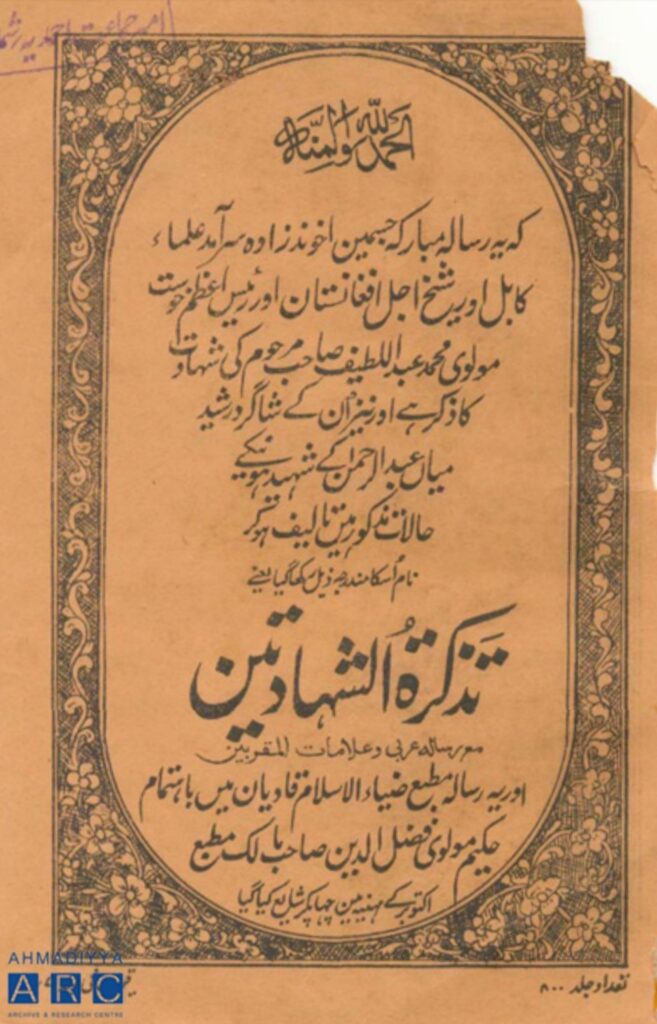 امر جماعت احمدیہ
الحمدللہ والمنۃ
کہ یہ رسالہ مبارکہ جسمین اخوندزادہ سرآمد علماء
کابل اور شیخ اجل افغانستان اور رئیس اعظم خوست
مولوی محمد عبداللطیف صاحب مرحوم کی شہادت
کا ذکر ہے اور نیز ان کے شاگرد رشید
میاں عبدالرحمن کے شہید ہونیکے
حالات مذکور ہیں تالیف ہوکر
نام اُسکا مندرجہ ذیل رکھا گیا یعنے
تذکرۃ الشہادتین
مع رسالہ عربی وعلامات المقربین
اور یہ رسالہ مطبع ضیاء الاسلام قادیان میں باہتمام
حکیم مولوی فضل الدین صاحب مالک مطبع
اکتوبر کے مہینہ مین چھاپکر شایع کیا گیا
تعداد جلد ۸۰۰
AHMADIYYA
ARC
ARCHIVE & RESEARCH CENTRE